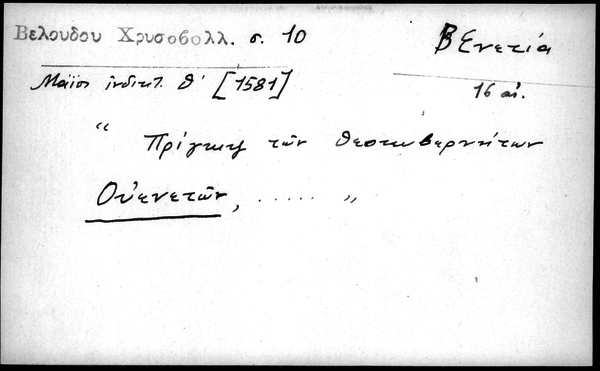 Βελουδου Χρυσοβολλ. σ. 10
Βενετία
Μαϊος ἰνδικτ. θ' [1581]
16 αἰ.
" Πρίγκιψ τῶν θεοκυβερνήτων
Οὐενετῶν, ..... "